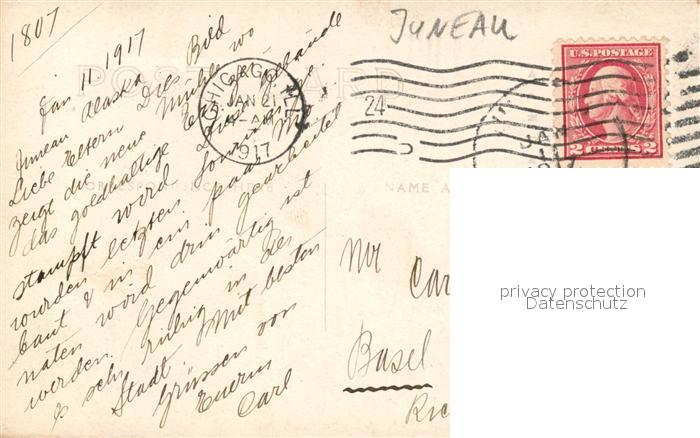 1807
JUNEAU
Jan 11 1917
Juneau Alaska
Liebe Eltern Dies Bild
zeigt die neue Mühle wo
das goldhaltige Erz ge
stampft wird Gebäude
wurden letzten Sommer ge
baut & in ein paar Mo
naten wird drin gearbeitet
werden. Gegenwärtig ist
es sehr ruhig in der
Stadt. Mit besten
Grüssen von
Euerm
Carl
CHICAGO, ILL.
JAN 21
12 - AM
1917
24
U.S. POSTAGE
2 2
JAN
POST CARD
NAME A
Mr Car
Basel
Ric
privacy protection
Datenschutz